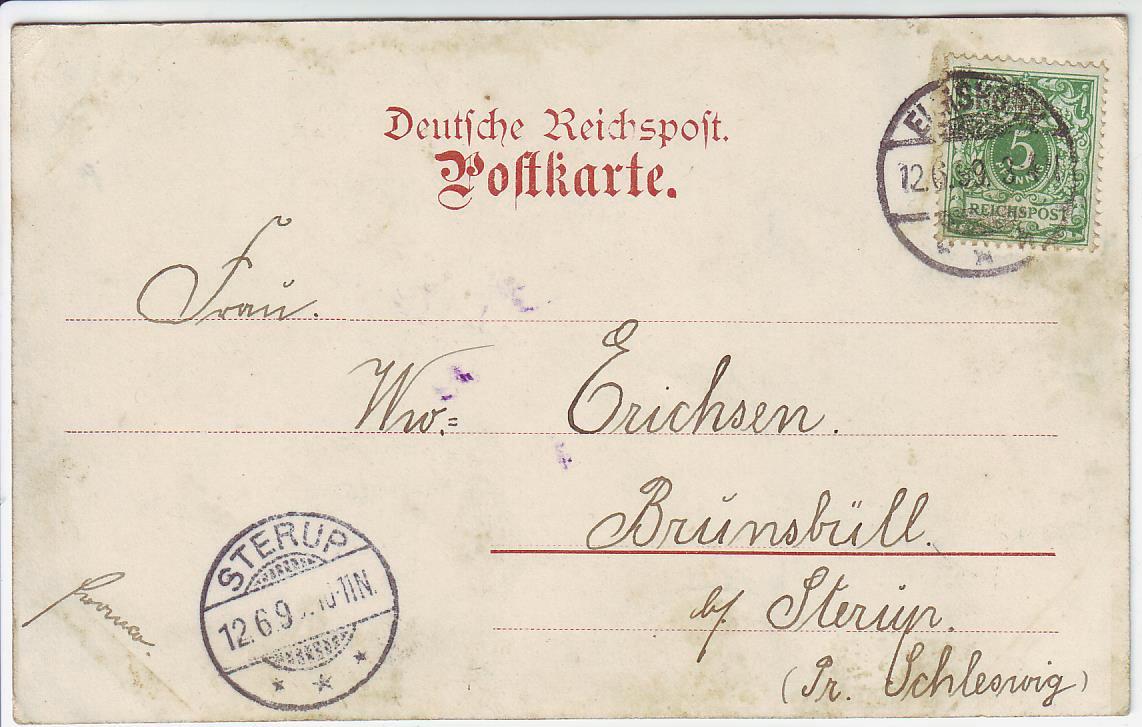 Deutsche Reichspost.
Postkarte.
5
REICHSPOST
12.6.99.
Frau.
Ww.= Erichsen.
Brunsbüll.
b/. Sterup.
(Pr. Schleswig)
STERUP
12.6.9 10-11N.